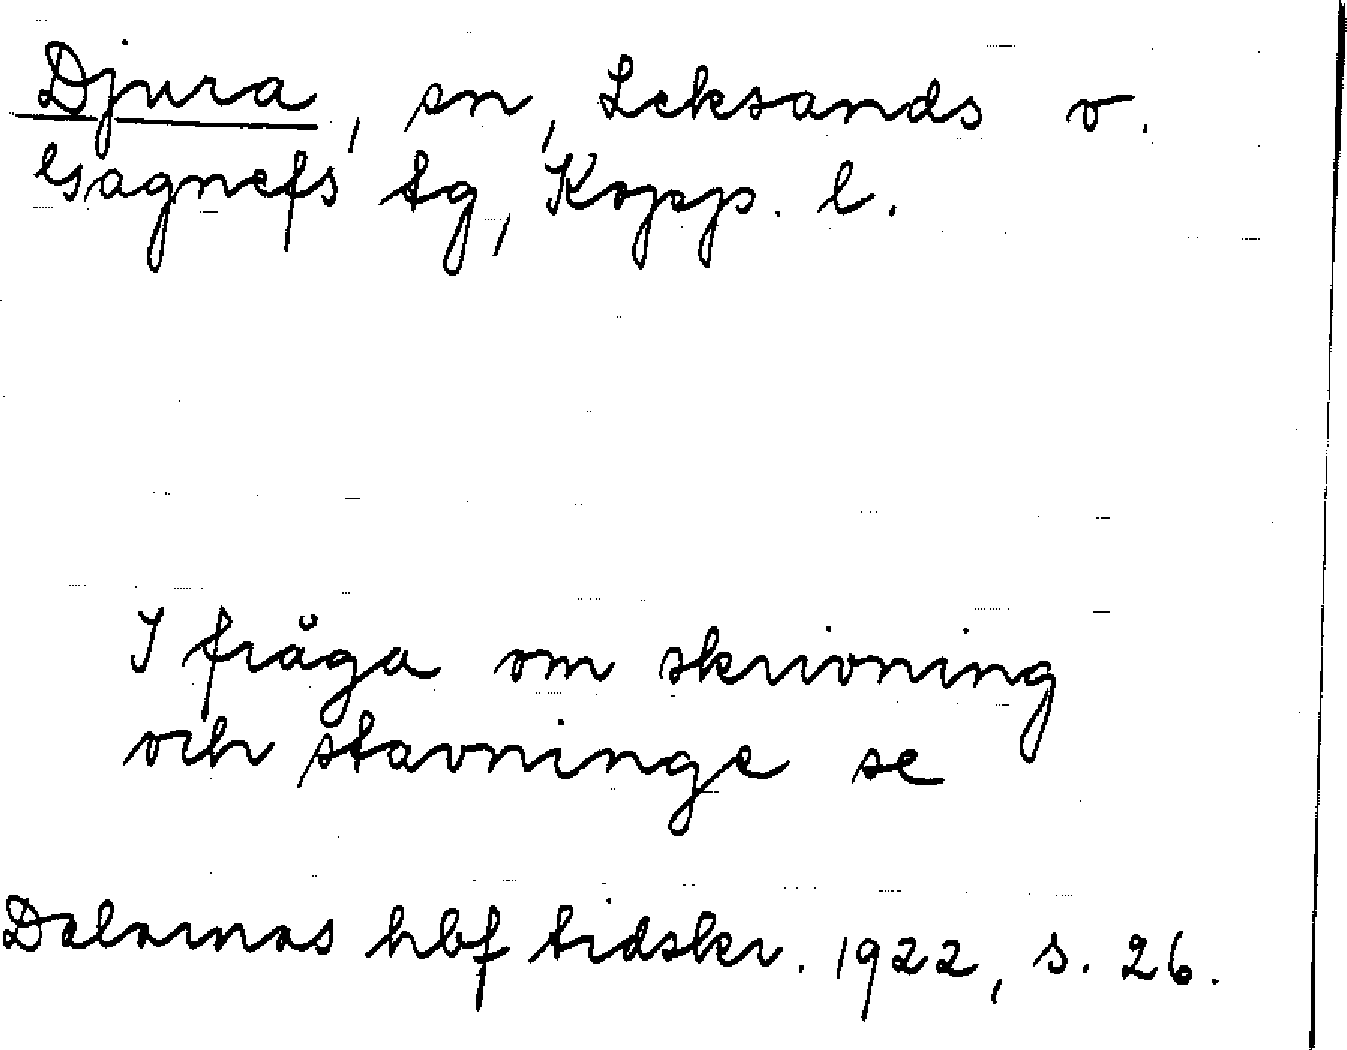 Djura, sn, Leksands o.
Gagnefs tg, Kopp. l.
I fråga om skrivning
och stavninge se
Dalarnas hbf tidskr. 1922, s. 26.